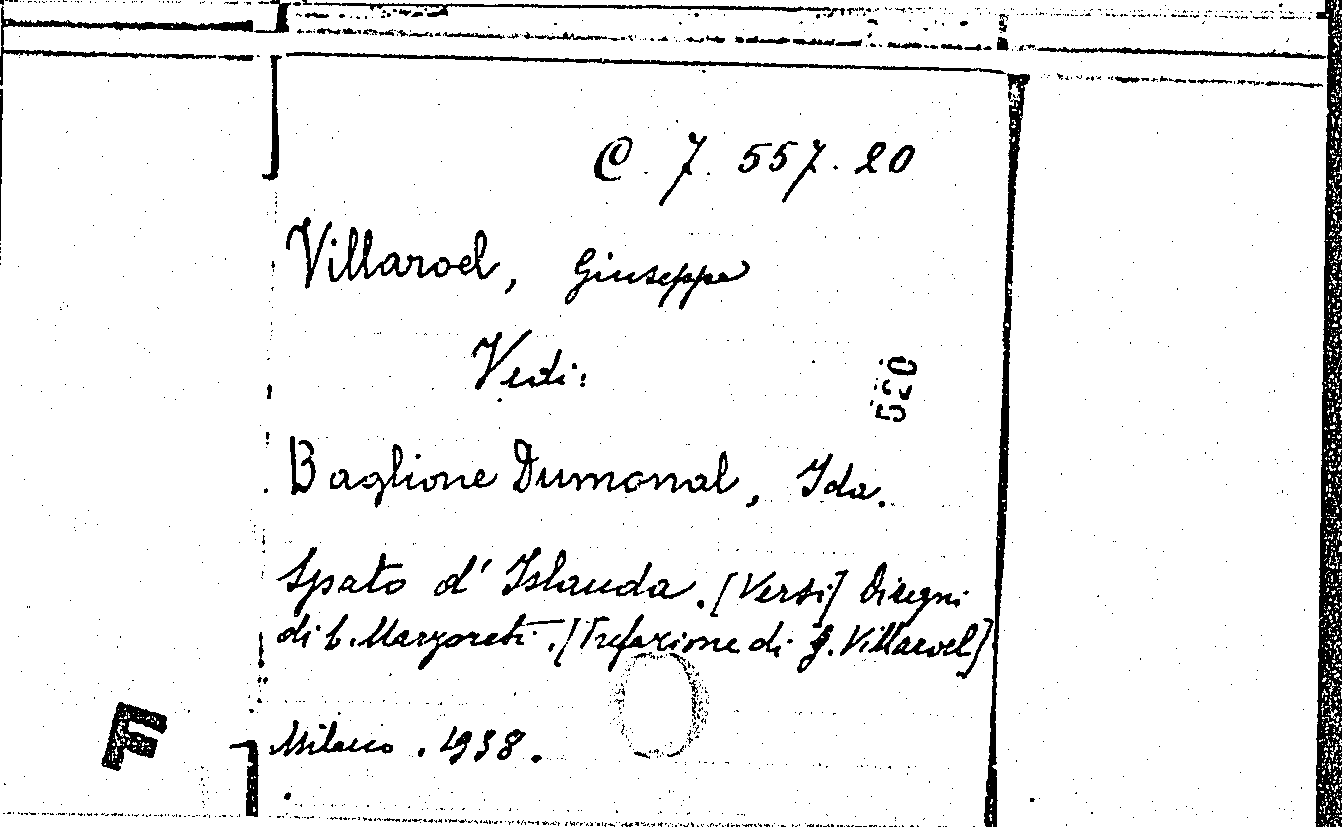 C. 7. 557. 20
Villaroel, Giuseppe
Vedi:
520
Baglione Dumonal, Ida.
Spato d'Islanda. [Versi] Disegni
di B. Marzorati. [Prefazione di G. Villaroel]
Milano. 1938.
F